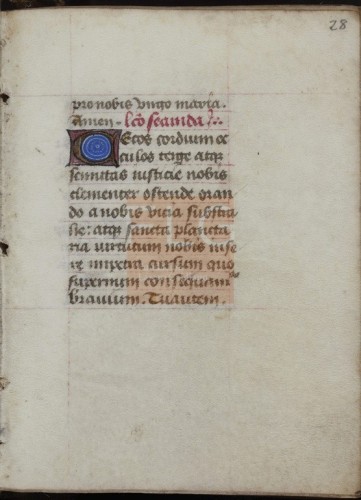 28
pro nobis virgo maria.
Amen. lc̃o secunda
Cecos cordium oc
culos terge atqꝫ
semitas iusticie nobis
clementer ostende eran
do a nobis vicia substra
he: atqꝫ sancta planeta
ria virtutum nobis inse
re impetra cursum quo
supernum consequam̃
bravium. Tu autem.